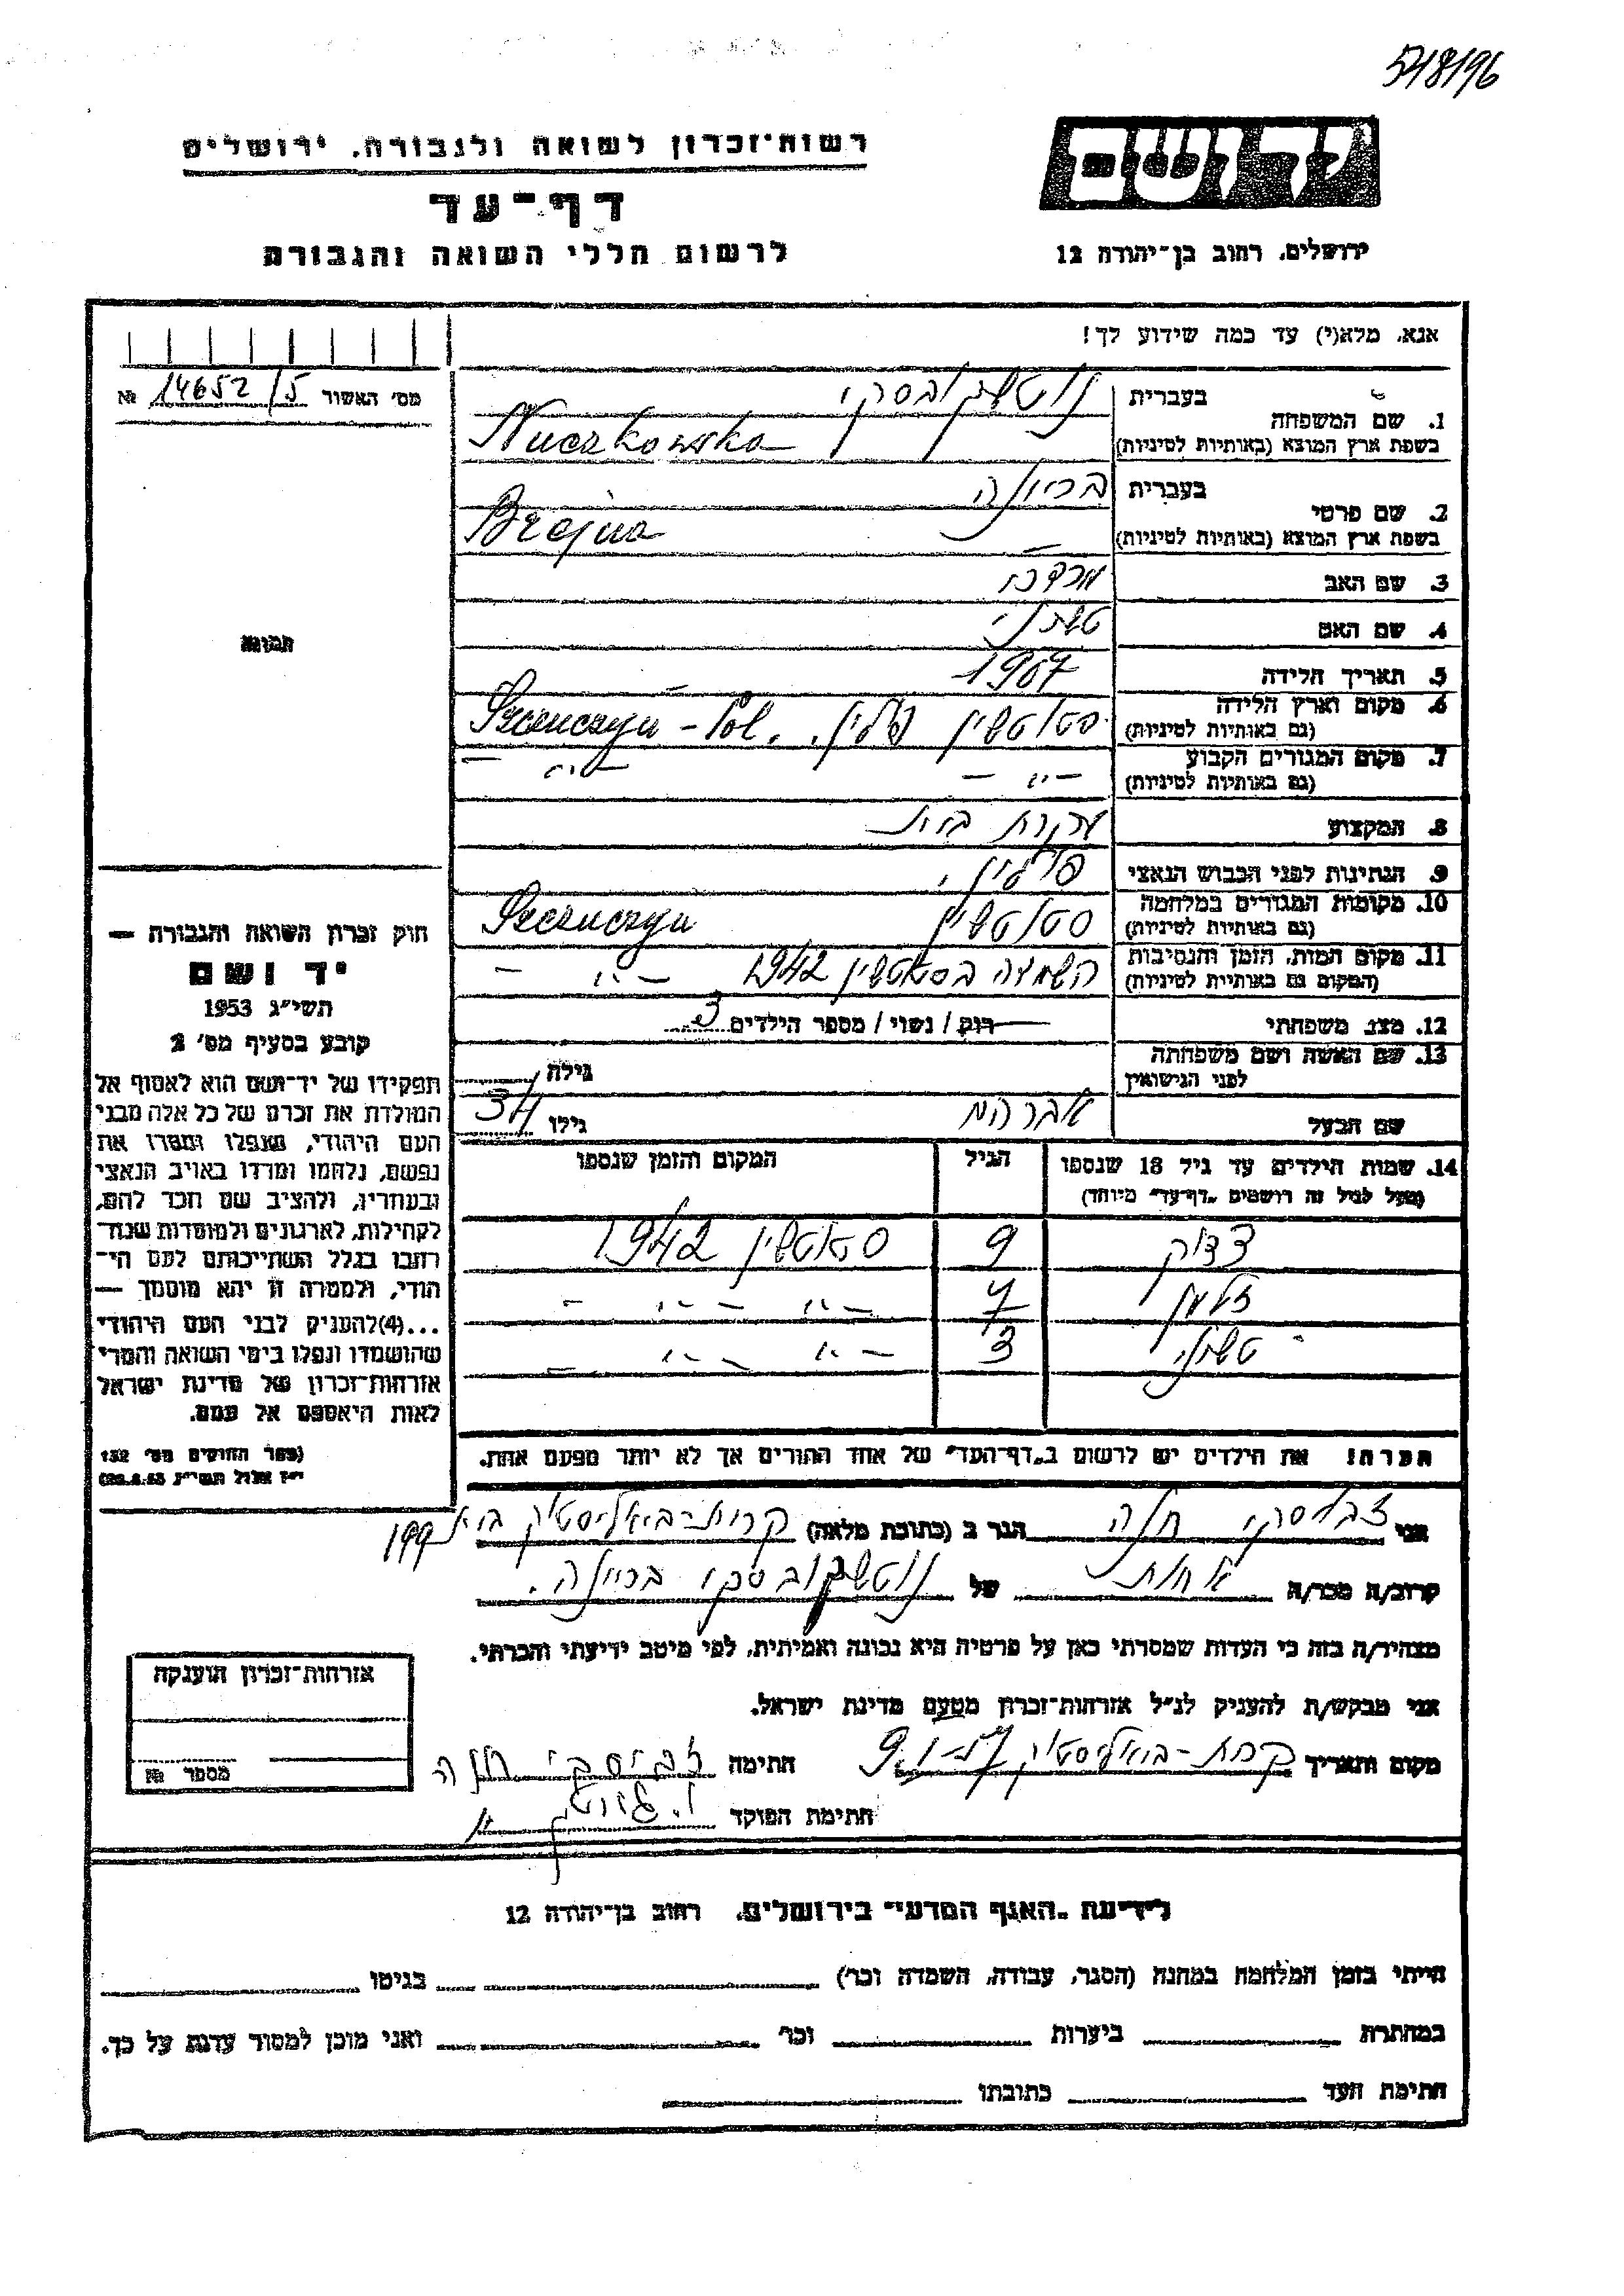 רשות־זכרון לשואה ולגבורה, ירושלים
דף־עד
לרשום חללי השואה והגבורה
יד ושם
ירושלים, רחוב בן־יהודה 12
אנא, מלא(י) עד כמה שידוע לך!
מס׳ האשור 14652/5 №
1. שם המשפחה
בעברית נוטשקובסקי
בשפת ארץ המוצא (באותיות לטיניות) Nuczkowska
2. שם פרטי
בעברית בריינה
בשפת ארץ המוצא (באותיות לטיניות) Brejna
3. שם האב מרדכי
4. שם האם
5. תאריך הלידה 1907
6. מקום וארץ הלידה
(גם באותיות לטיניות) פולין. Pol.
7. מקום המגורים הקבוע
(גם באותיות לטיניות) — " — — " —
8. המקצוע עקרת בית
9. הנתינות לפני הכבוש הנאצי פולנית
10. מקומות המגורים במלחמה
(גם באותיות לטיניות) Szczuczyn
11. מקום המות, הזמן והנסיבות
(המקום גם באותיות לטיניות) השמדה 1942 — " —
12. מצב משפחתי רווק / נשוי / מספר הילדים 3
13. שם האשה ושם משפחתה
לפני הנישואין גילה
שם הבעל אברהם גילו 34
14. שמות הילדים עד גיל 18 שנספו
(מעל לגיל זה רושמים „דף־עד״ מיוחד)
הגיל
המקום והזמן שנספו
9 1942
זלמן 7 — " — — " —
3 — " — — " —
הערה! את הילדים יש לרשום ב„דף־העד״ של אחד ההורים אך לא יותר מפעם אחת.
תמונה
חוק זכרון השואה והגבורה —
יד ושם
תשי״ג 1953
קובע בסעיף מס׳ 2
תפקידו של יד־ושם הוא לאסוף אל
המולדת את זכרם של כל אלה מבני
העם היהודי, שנפלו ומסרו את
נפשם, נלחמו ומרדו באויב הנאצי
ובעוזריו, ולהציב שם וזכר להם,
לקהילות, לארגונים ולמוסדות שנח־
רבו בגלל השתייכותם לעם הי־
הודי, ולמטרה זו יהא מוסמך —
...(4)להעניק לבני העם היהודי
שהושמדו ונפלו בימי השואה והמרי
אזרחות־זכרון של מדינת ישראל
לאות היאספם אל עמם.
(ספר החוקים מס׳ 132
י״ז אלול תשי״ג 28.8.53)
אני חנה הגר ב (כתובת מלאה) קרית-ביאליסטוק
קרוב/ה מכר/ה אחות של נוטשקובסקי בריינה.
מצהיר/ה בזה כי העדות שמסרתי כאן על פרטיה היא נכונה ואמיתית, לפי מיטב ידיעתי והכרתי.
אני מבקש/ת להעניק לנ״ל אזרחות־זכרון מטעם מדינת ישראל.
מקום ותאריך קרית-ביאליסטוק חתימה חנה
חתימת הפוקד
אזרחות־זכרון הוענקה
מספר №
לידיעת „האגף המדעי״ בירושלים, רחוב בן־יהודה 12
הייתי בזמן המלחמה במחנה (הסגר, עבודה, השמדה וכו׳) בגיטו
במחתרת ביערות וכו׳ ואני מוכן למסור עדות על כך.
חתימת העד כתובתו